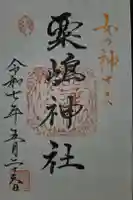 女の神さま
粟嶋神社
令和七年五月二十八日